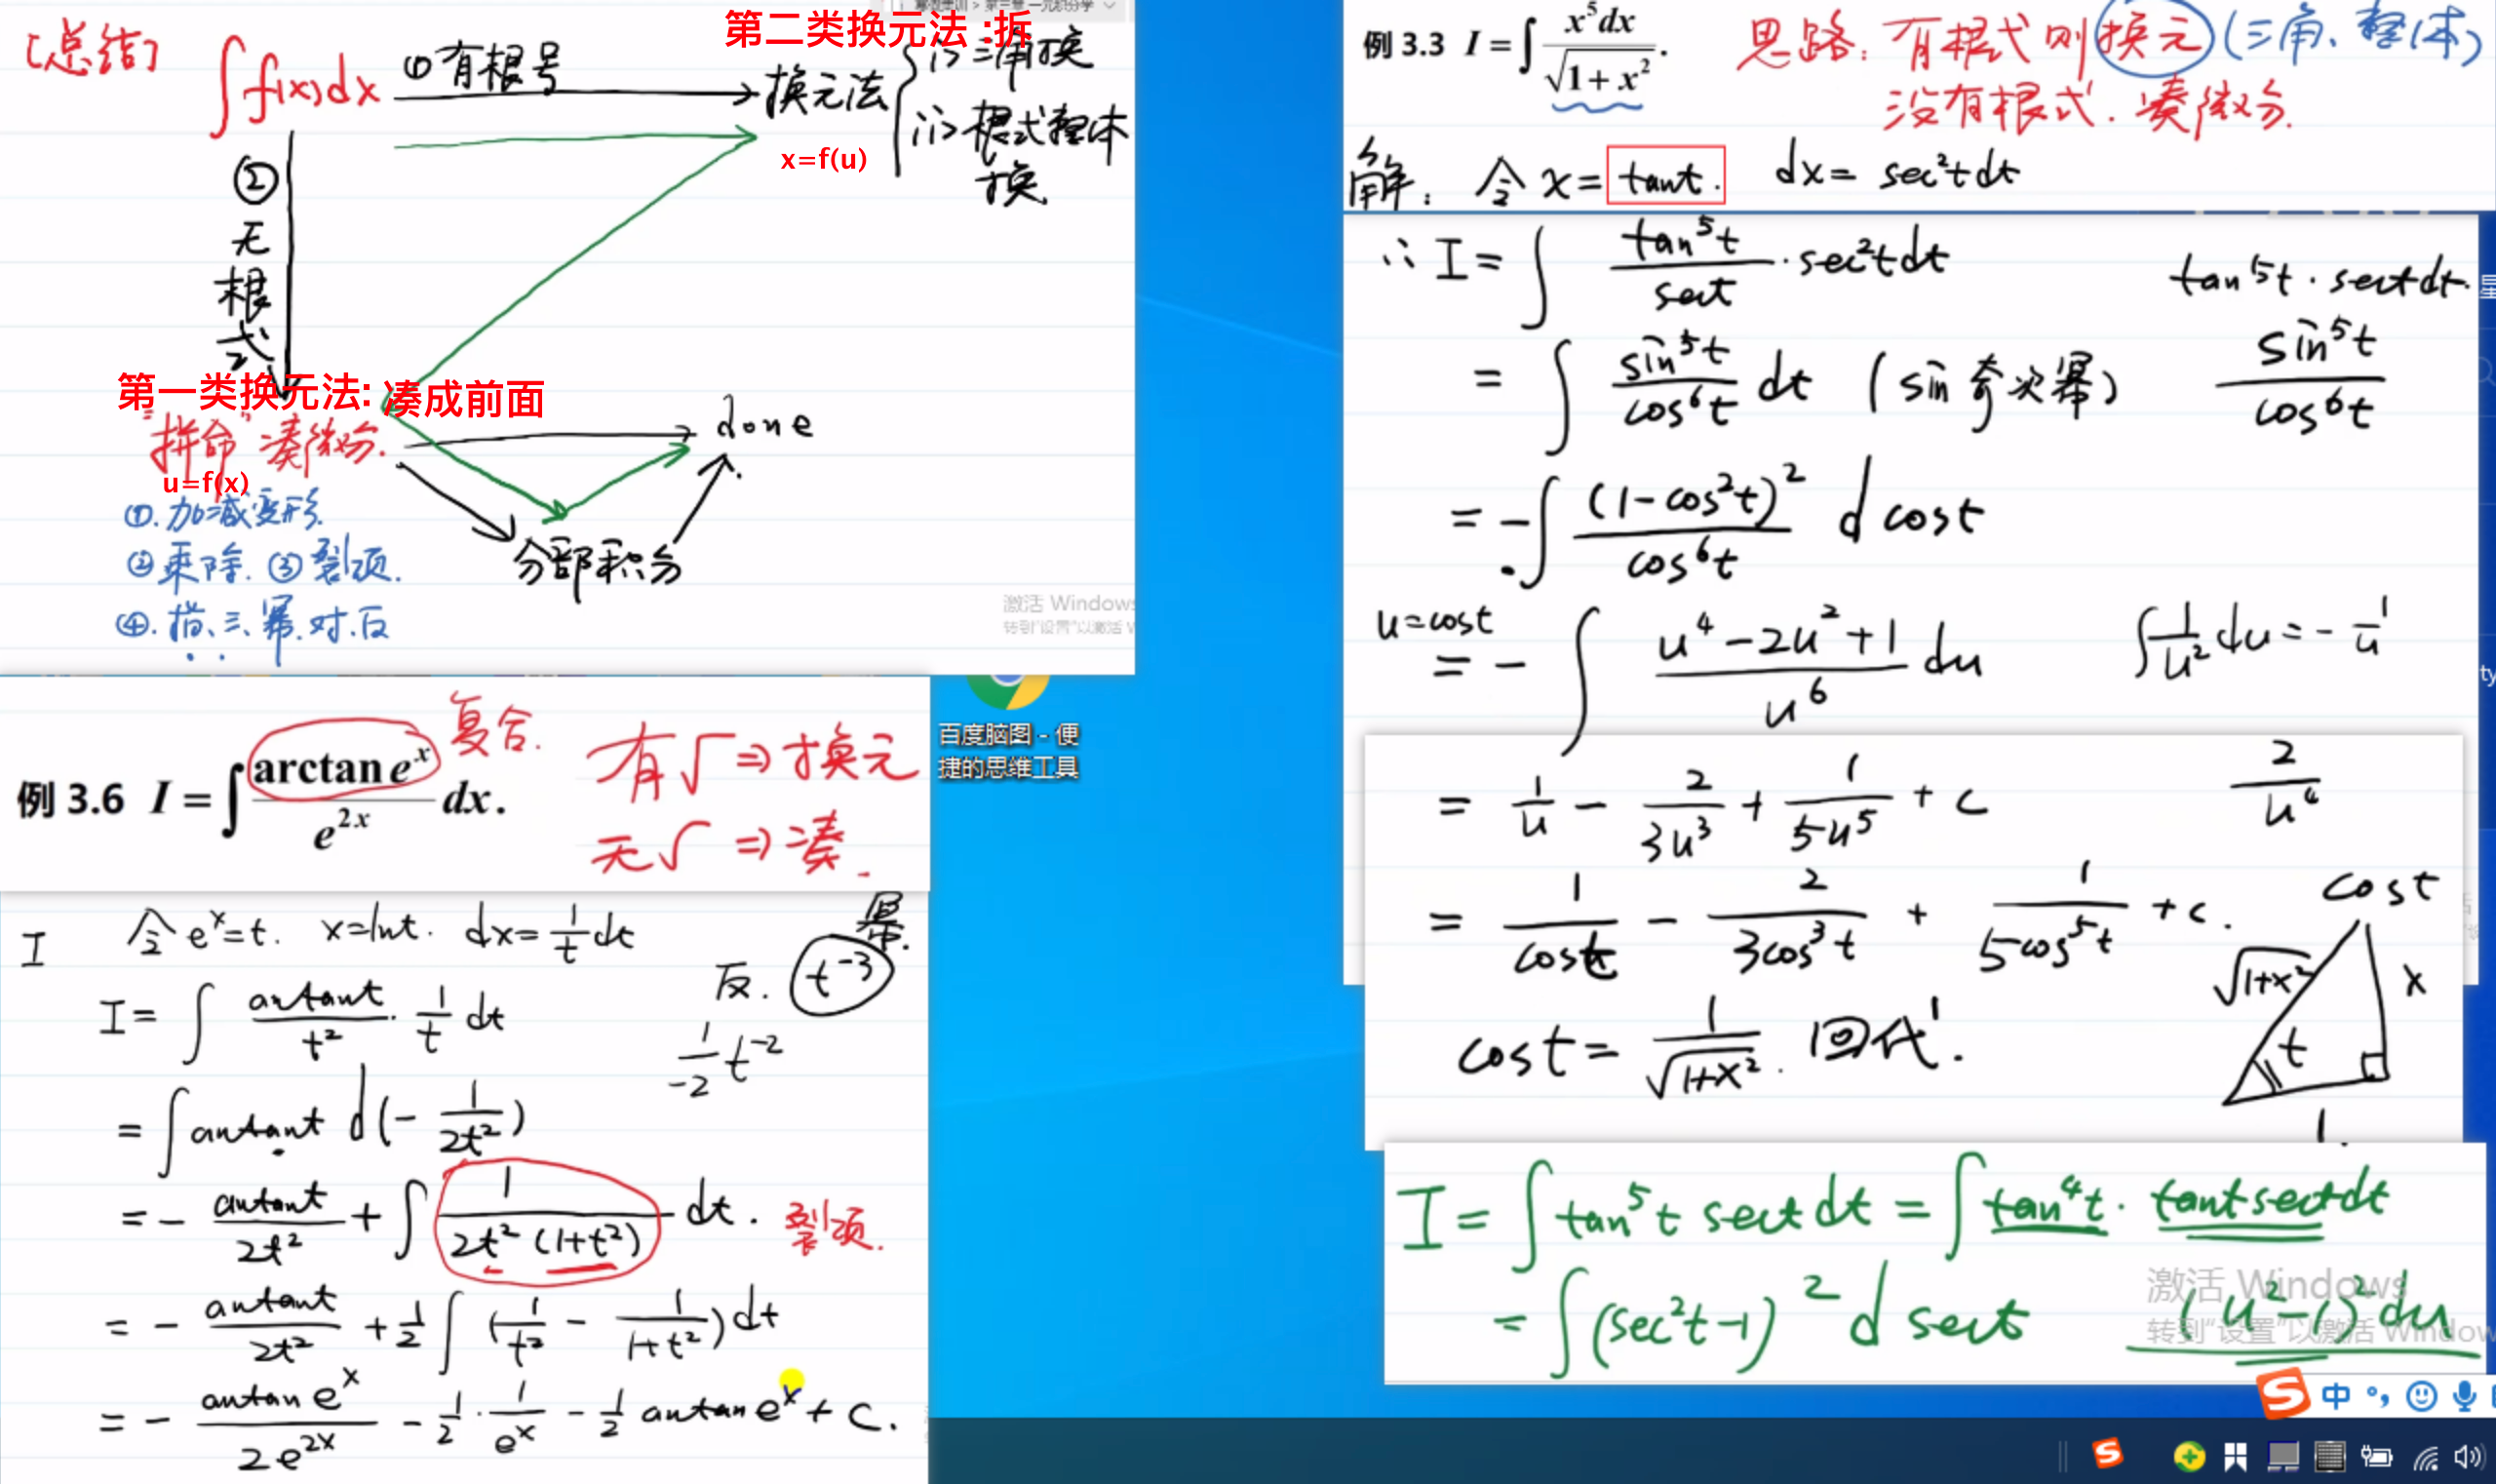 [总结]
∫f(x)dx
① 有根号
第二类换元法 :拆
换元法
i> 三角换
ii> 根式整体
换
x=f(u)
② 无根式
第一类换元法: 凑成前面
"拼命" 凑微分.
u=f(x)
done
①. 加减变形.
②乘除. ③裂项.
④. 指、三、幂、对、反
分部积分
激活 Windows
例 3.6 I = ∫ arctan e^x / e^{2x} dx.
复合.
有√ ⇒ 换元
无√ ⇒ 凑.
I 令 e^x = t. x = lnt. dx = 1/t dt
幂.
反. t^{-3}
1/-2 t^{-2}
I = ∫ arctant / t² · 1/t dt
= ∫ arctant d(- 1/2t²)
= - arctant / 2t² + ∫ 1 / 2t²(1+t²) dt. 裂项.
= - arctant / 2t² + 1/2 ∫ (1/t² - 1/1+t²) dt
= - arctan e^x / 2e^{2x} - 1/2 · 1/e^x - 1/2 arctan e^x + C.
百度脑图 - 便
捷的思维工具
例 3.3 I = ∫ x^5 dx / √(1+x²).
思路: 有根式则换元 (三角、整体)
没有根式. 凑微分.
解: 令 x = tant. dx = sec²t dt
∴ I = ∫ tan^5 t / sect · sec²t dt
tan^5 t · sect dt.
= ∫ sin^5 t / cos^6 t dt (sin 奇次幂)
sin^5 t / cos^6 t
= - ∫ (1-cos²t)² / cos^6 t d cost
u = cost
= - ∫ u^4 - 2u² + 1 / u^6 du
∫ 1/u² du = - 1/u
= 1/u - 2/3u³ + 1/5u^5 + C
2/u^4
= 1/cost - 2/3cos³t + 1/5cos^5 t + C.
cost
√(1+x²)
x
t
1
cost = 1/√(1+x²). 回代.
I = ∫ tan^5 t sect dt = ∫ tan^4 t · tant sect dt
= ∫ (sec²t - 1)² d sect
(u²-1)² du
激活 Windows
转到"设置"以激活 Window
中